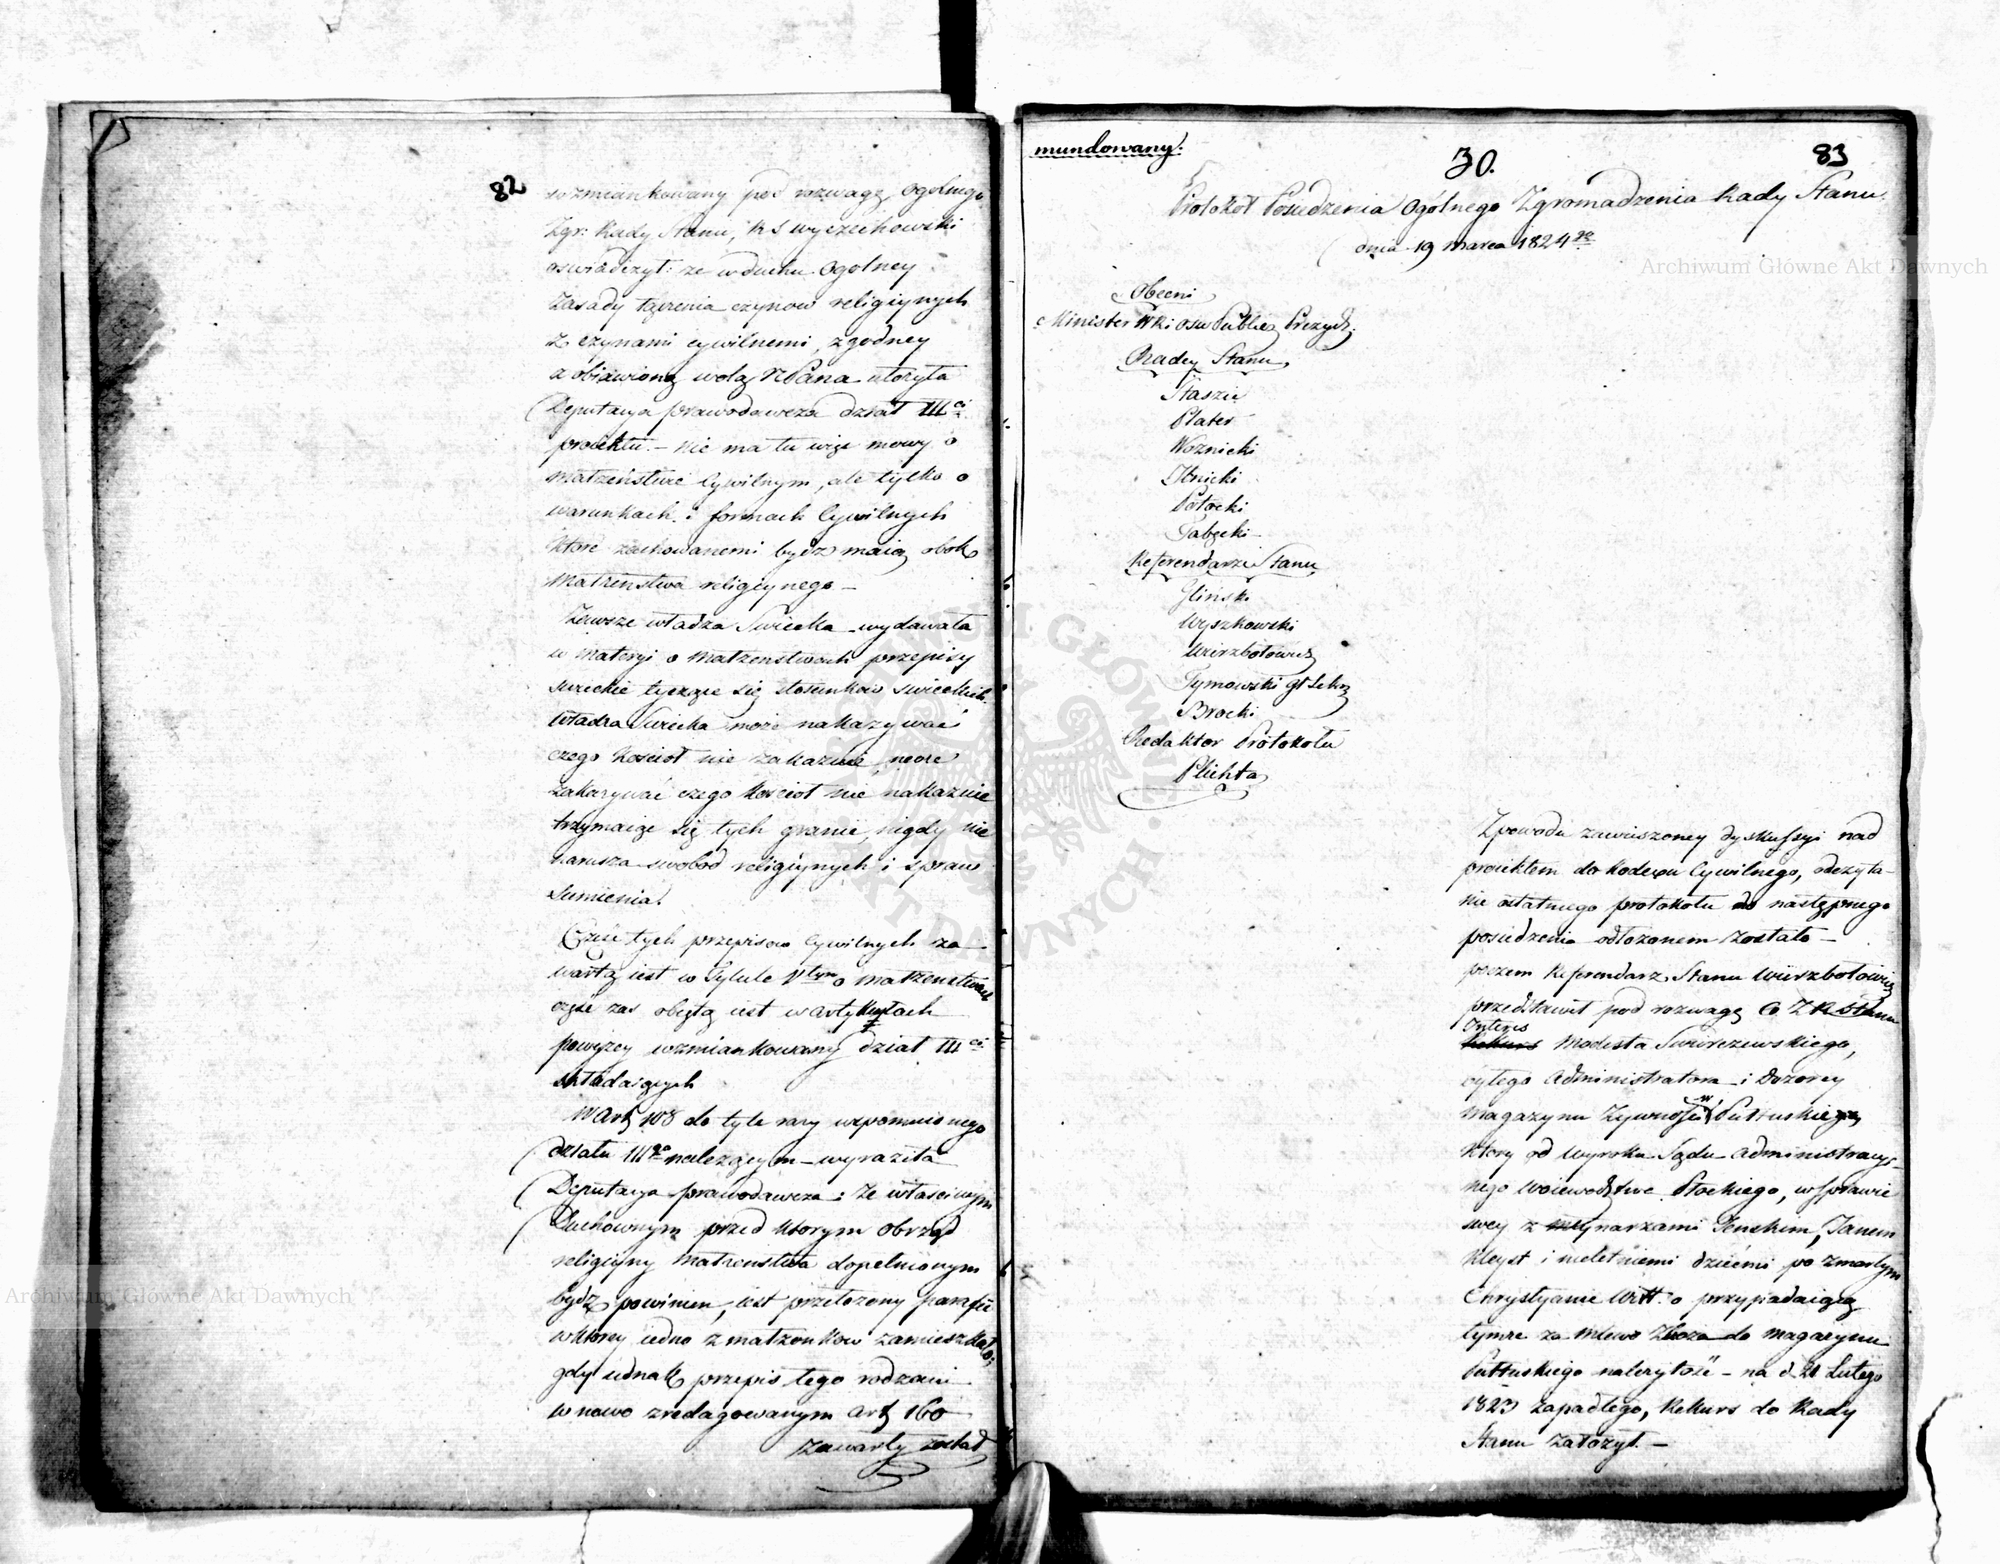 82
wzmiankowany pod rozwagę Ogolnego
Zgr: Rady Stanu, RS Wyczechowski
oswiadczył: że w duchu Ogolney
Zasady łączenia czynow religiynych
z czynami cywilnemi, zgodney
z obiawioną wolą NPana ułożyła
Deputacya prawodawcza dział III ci
proiektu. – nie ma tu więc mowy o
Małżeństwie Cywilnym, ale tylko o
warunkach i formach Cywilnych
które zachowanemi bydź maią obok
Małżenstwa religiynego –
Zawsze władza Swiecka wydawała
w materyi o Małżenstwach przepisy
swieckie tyczące się stosunkow swieckich.
władza Swiecka może nakazywać
czego Kościoł nie zakazuie, może
zakazywać czego Kościoł nie nakazuie
trzymaiąc się tych granic, nigdy nie
narusza swobod religiynych i spraw
Sumienia.
Część tych przepisow Cywilnych za
wartą iest w Tytule Vtym o Małżenstwach
część zas obiętą iest w artykułach
powyżey wzmiankowany dział III ci
składaiących
W Art 108 do tyle razy wspomnionego
działu III go należącym – wyraziła
Deputacya prawodawcza: że właściwym
Duchownym przed ktorym obrząd
religiyny Małżenstwa dopełnionym
bydź powinien, iest przełożony parafii
w ktorey iedno z małżonkow zamieszkało;
gdy iednak przepis tego rodzaiu
w nowo zredagowanym art 160
zawarty został
mundowany.
30.
83
Protokół Posiedzenia Ogólnego Zgromadzenia Rady Stanu.
dnia 19 Marca 1824 go
Obecni
Minister WRi Osw Public Prezyd:
Radcy Stanu
Staszic
Plater
Woznicki
Potocki
Tabęcki
Referendarze Stanu
Gliński
Wyszkowski
Wierzbołowicz
Tymowski gł Sekrz
Brocki
Redaktor Protokołu
Plichta
Z powodu zawieszoney dyskussyi nad
proiektem do Kodexu Cywilnego, odczyta-
nie ostatniego protokołu do następnego
posiedzenia odłożonem zostało –
poczem Referendarz Stanu Wierzbołowicz
przedstawił pod rozwagę O Z R Stanu
Interes
Modesta Swierczewskiego,
byłego Administratora i Dozorcy
Magazynu Żywności w Pułtuskie
ktory od Wyroku Sądu Administracyi-
nego Woiewodztwa Płockiego, w Sprawie
swey z młynarzami Janem
Kleyst i nieletniemi dziećmi po zmarłym
Chrystyanie Witt. o przypadaiącą
tymże za mlewo Zboża do magazynu
Pułtuskiego należytość – na d 21 Lutego
1823 zapadłego, Rekurs do Rady
Stanu założył. –
Archiwum Główne Akt Dawnych
Archiwum Główne Akt Dawnych